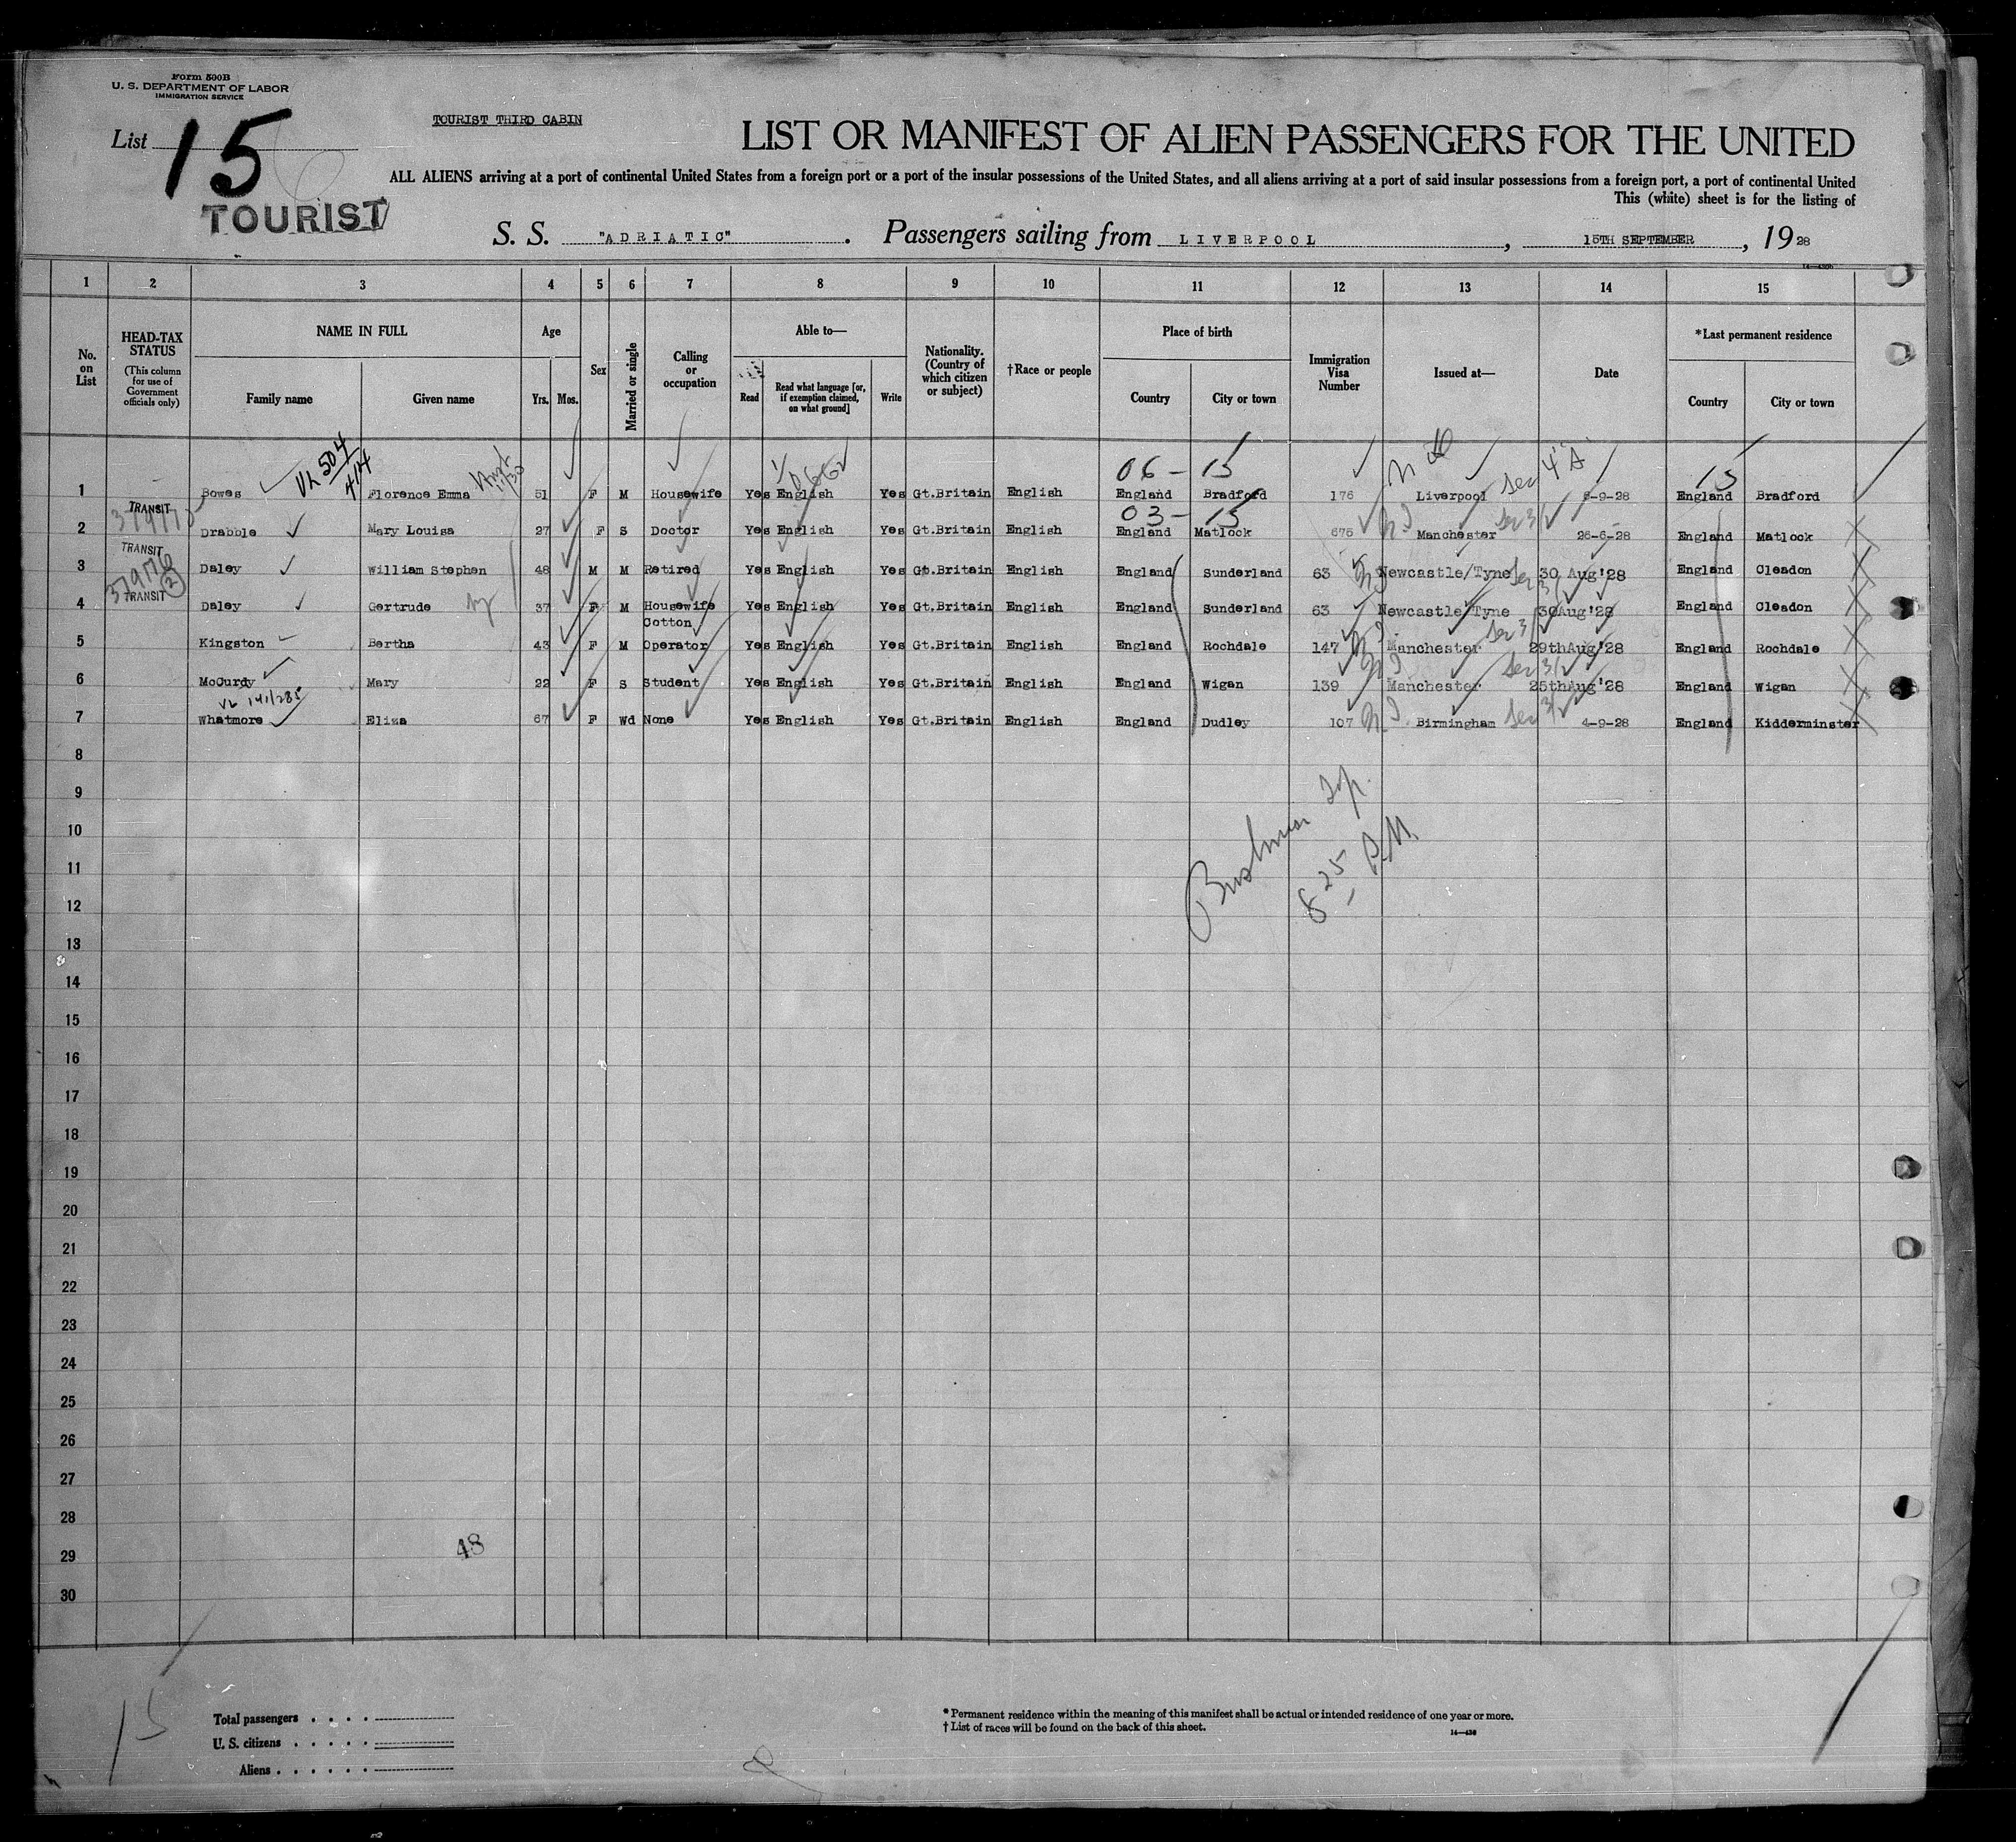 Form 500B
U. S. DEPARTMENT OF LABOR
IMMIGRATION SERVICE
List 15
TOURIST THIRD CABIN
TOURIST
LIST OR MANIFEST OF ALIEN PASSENGERS FOR THE UNITED
ALL ALIENS arriving at a port of continental United States from a foreign port or a port of the insular possessions of the United States, and all aliens arriving at a port of said insular possessions from a foreign port, a port of continental United
This (white) sheet is for the listing of
S. S. "ADRIATIC". Passengers sailing from LIVERPOOL, 15TH SEPTEMBER, 1928
1 2 3 4 5 6 7 8 9 10 11 12 13 14 15
No. on List
HEAD-TAX STATUS
(This column for use of Government officials only)
NAME IN FULL
Family name Given name
Age
Yrs. Mos.
Sex
Married or single
Calling or occupation
Able to—
Read Read what language [or, if exemption claimed, on what ground] Write
Nationality. (Country of which citizen or subject)
†Race or people
Place of birth
Country City or town
Immigration Visa Number
Issued at—
Date
*Last permanent residence
Country City or town
VL 504/414
06 - 15
15
1 Bowes Florence Emma 51 F M Housewife Yes English Yes Gt.Britain English England Bradford 176 Liverpool -9-28 England Bradford
03 - 15
TRANSIT
2 Drabble Mary Louisa 27 F S Doctor Yes English Yes Gt.Britain English England Matlock 675 Manchester 26-6-28 England Matlock
TRANSIT
3 Daley William Stephen 48 M M Retired Yes English Yes Gt.Britain English England Sunderland 63 Newcastle/Tyne 30 Aug'28 England Cleadon
TRANSIT
4 Daley Gertrude 37 F M Housewife Yes English Yes Gt.Britain English England Sunderland 63 Newcastle/Tyne 30Aug'28 England Cleadon
5 Kingston Bertha 43 F M Cotton Operator Yes English Yes Gt.Britain English England Rochdale 147 Manchester 29thAug'28 England Rochdale
6 McCurdy Mary 22 F S Student Yes English Yes Gt.Britain English England Wigan 139 Manchester 25thAug'28 England Wigan
VL 141/285
7 Whatmore Eliza 67 F Wd None Yes English Yes Gt.Britain English England Dudley 107 Birmingham 4-9-28 England Kidderminster
8
9
10
11
12
13
14
15
16
17
18
19
20
21
22
23
24
25
26
27
28
29
30
8 25 P.M.
48
15
Total passengers
U. S. citizens
Aliens
* Permanent residence within the meaning of this manifest shall be actual or intended residence of one year or more.
† List of races will be found on the back of this sheet.